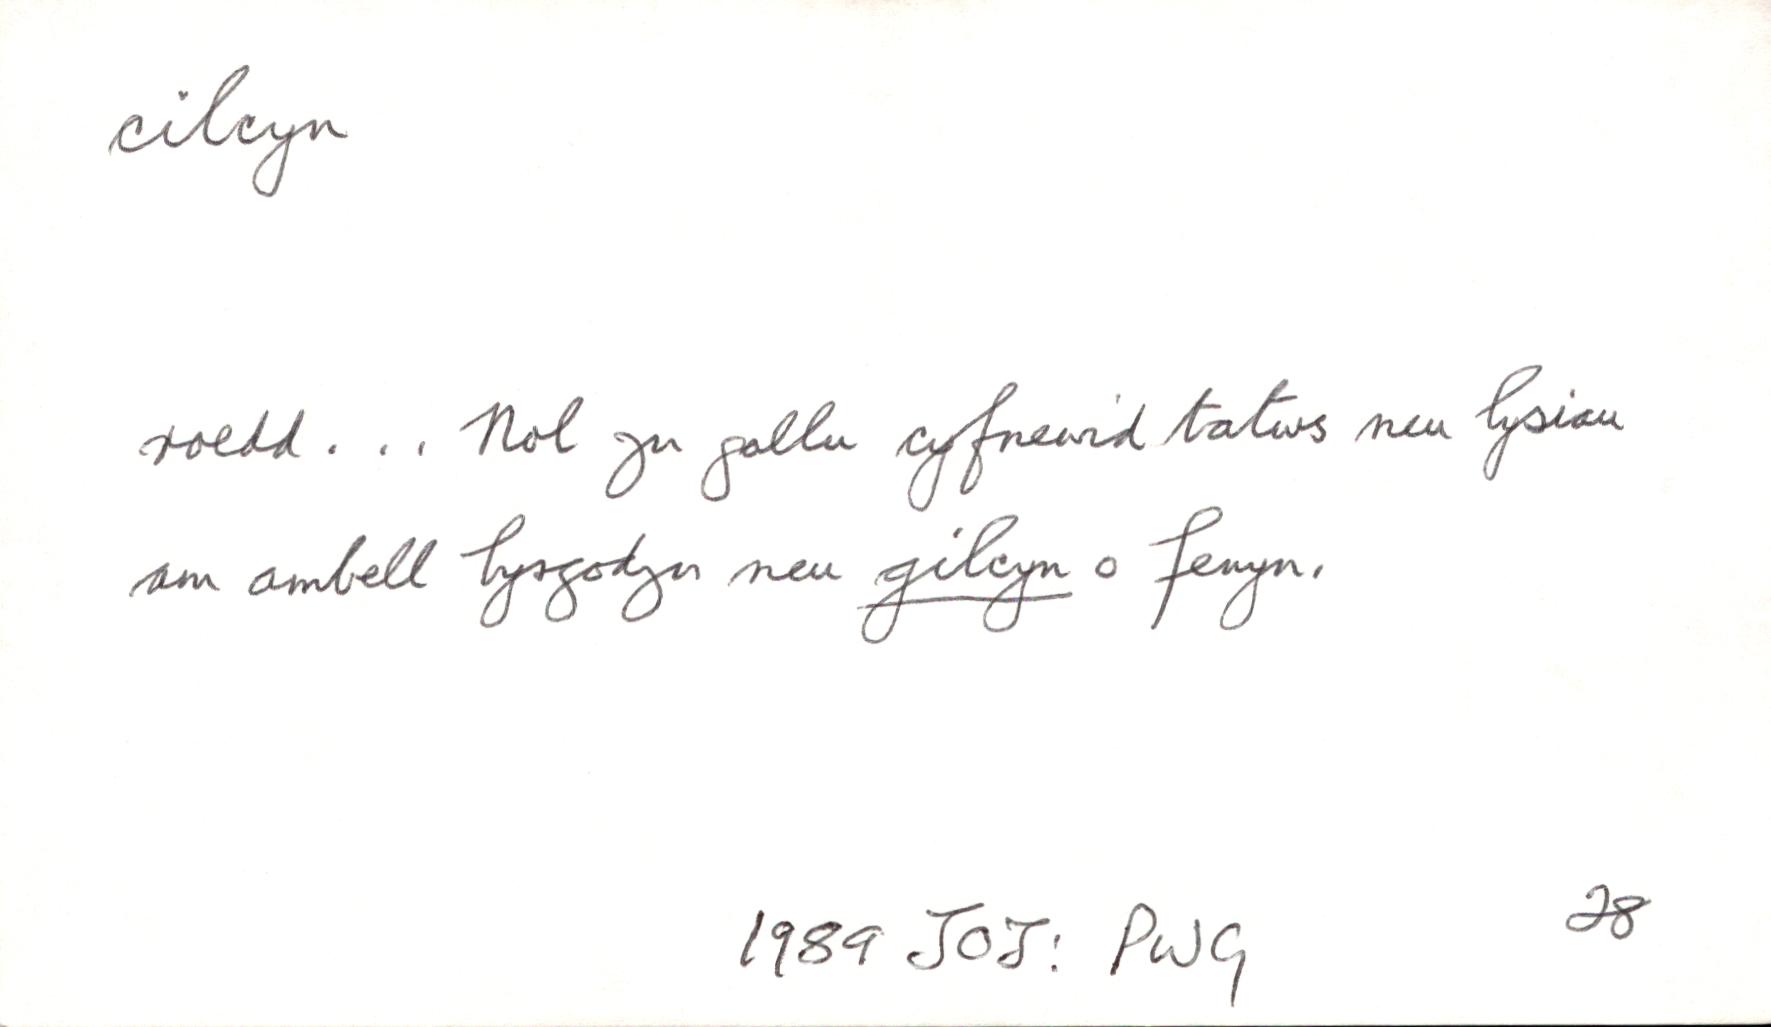 cilcyn
roedd... Nol yn gallu cyfnewid tatws neu lysiau
am ambell bysgodyn neu gilcyn o fenyn.
1989 JOJ: PWG 28